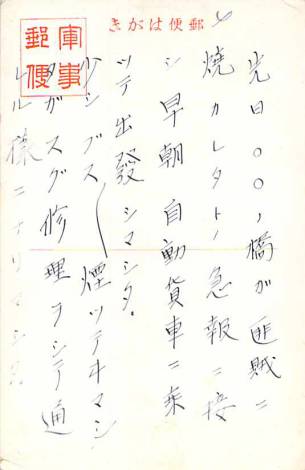 きがは便郵
軍事
郵便
先日〇〇ノ橋ガ匪賊ニ
焼カレタトノ急報ニ接
シ早朝自動貨車ニ乗
ツテ出發シマシタ。
少シブスブス煙ツテヰマシ
タガスグ修理ヲシテ通
ル様ニナリマシタ